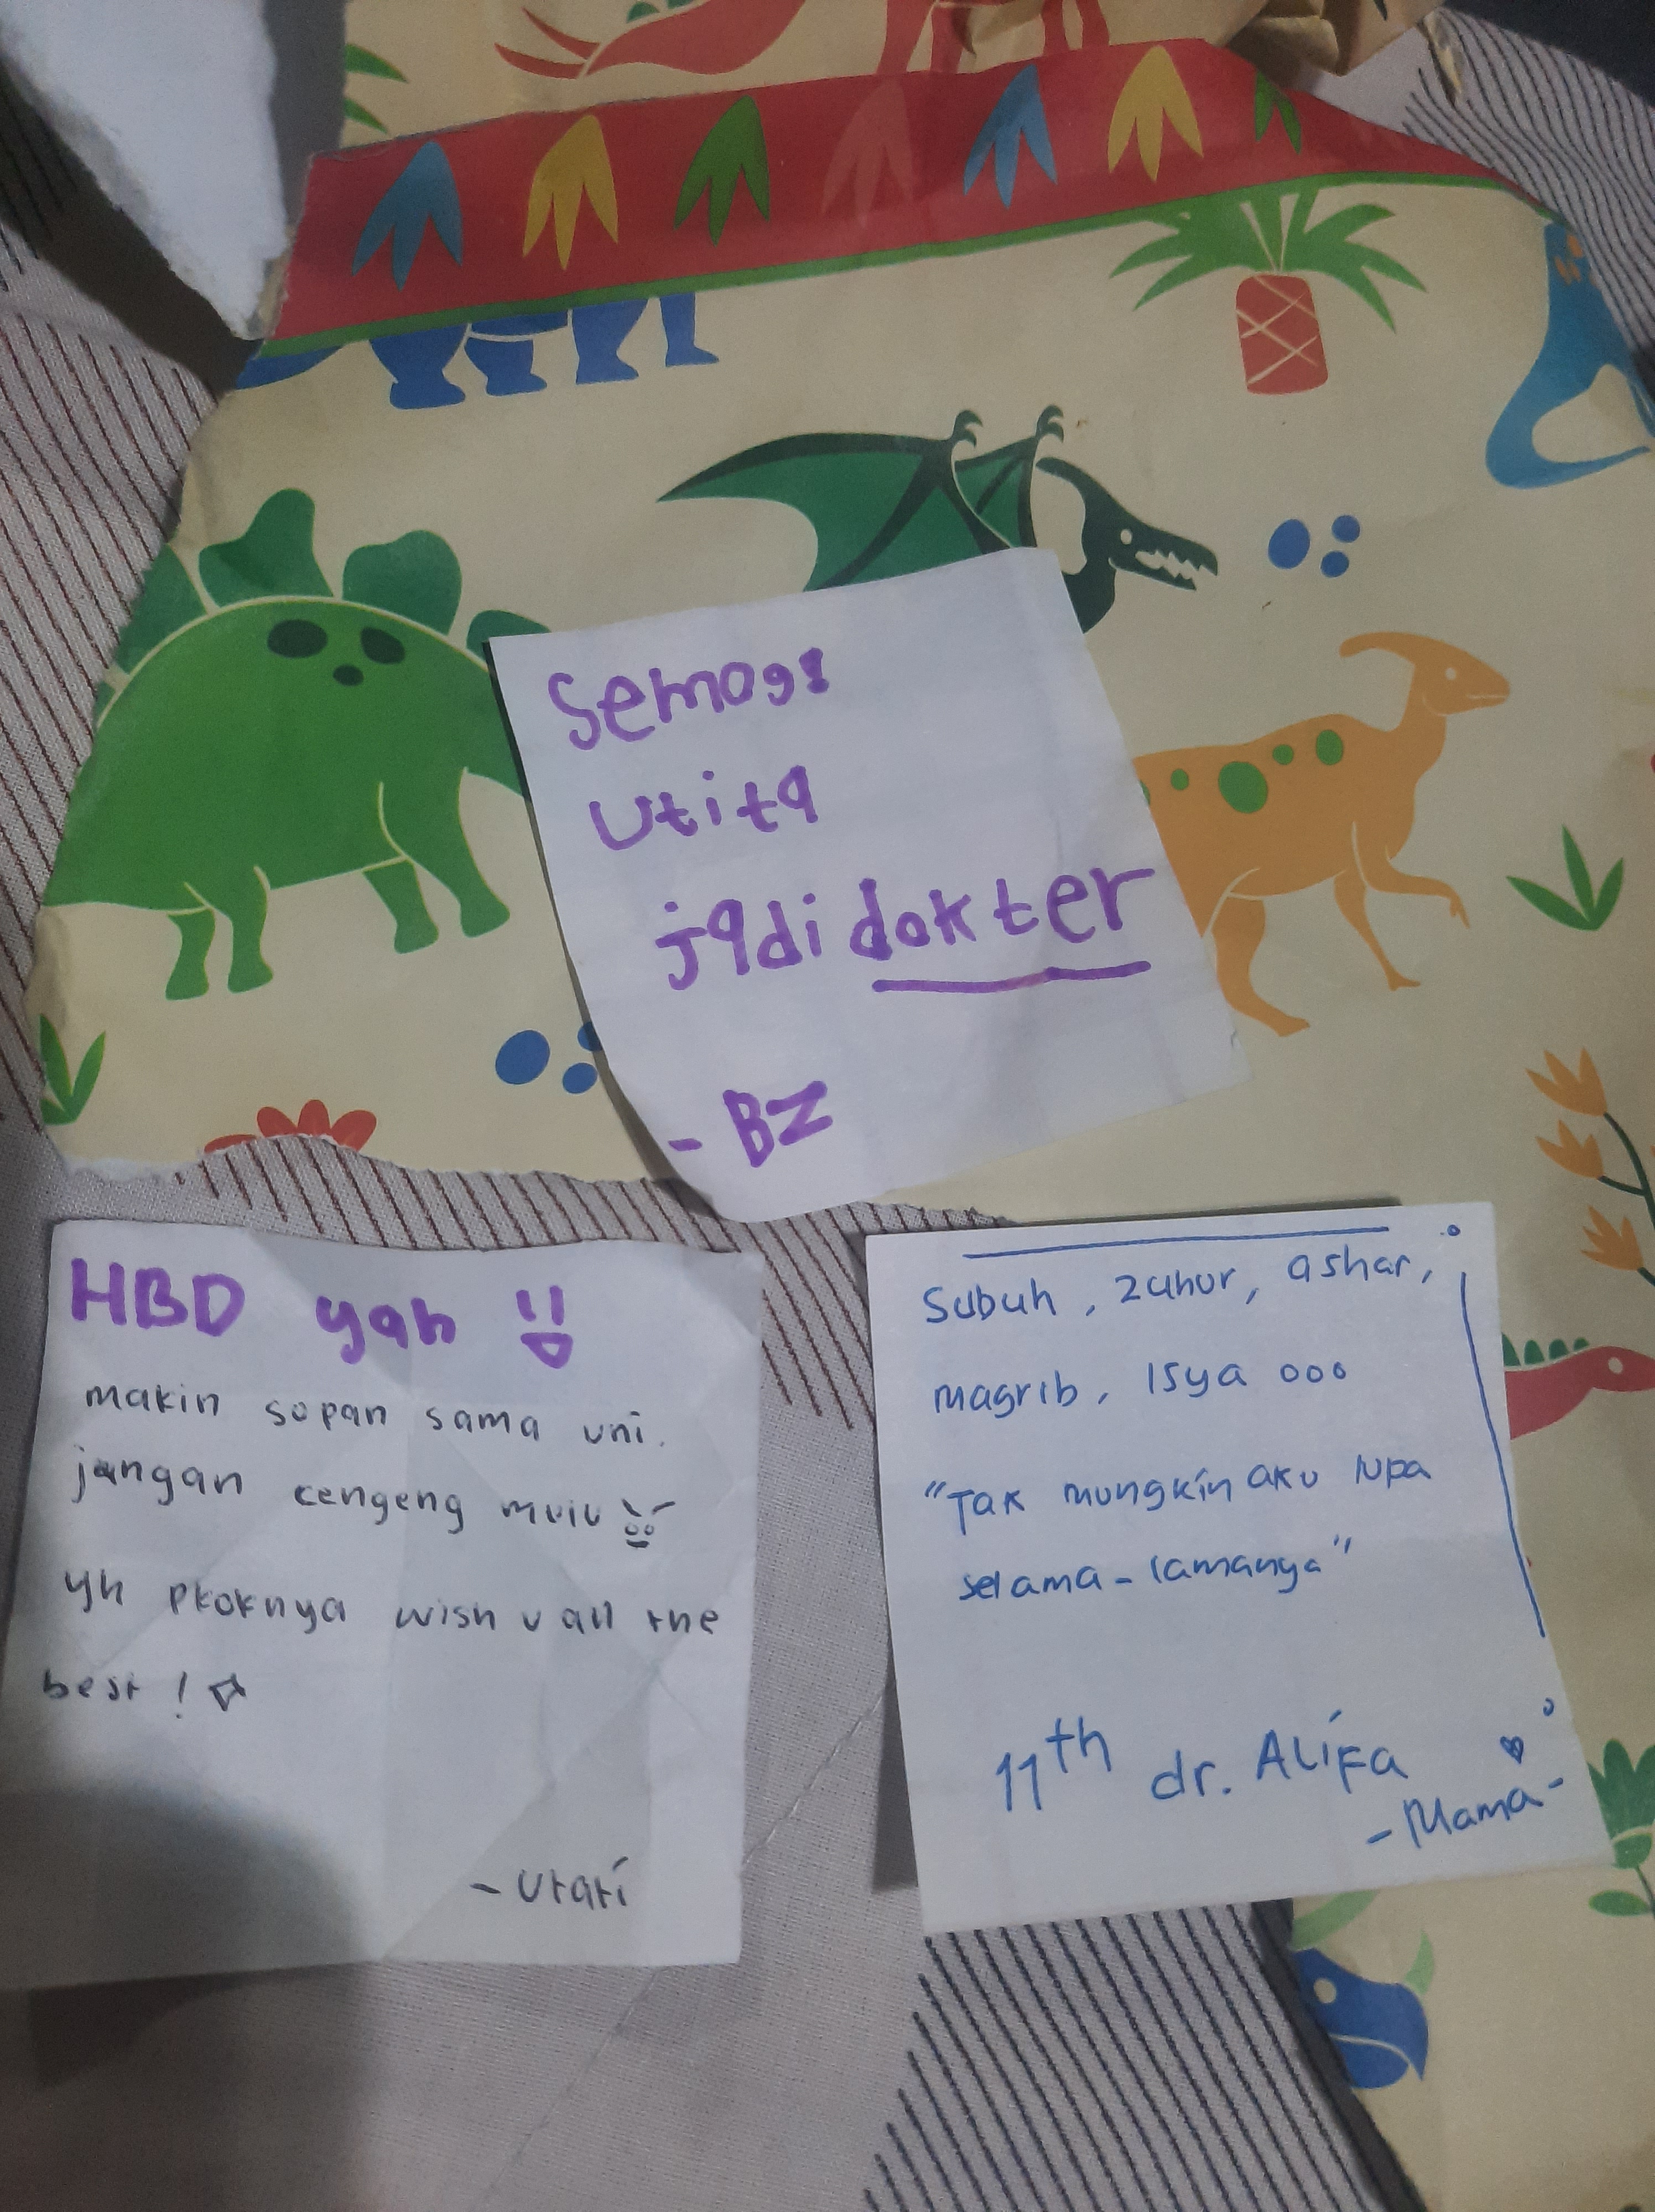 Semoga
Utita
jadi dokter
- BZ
HBD yah
makin sopan sama uni.
jangan cengeng mulu
yh pkoknya wish u all the
best!
- Utari
Subuh, zuhur, ashar,
magrib, Isya ooo
"Tak mungkin aku lupa
selama-lamanya"
11th dr. Alifa
- Mama -